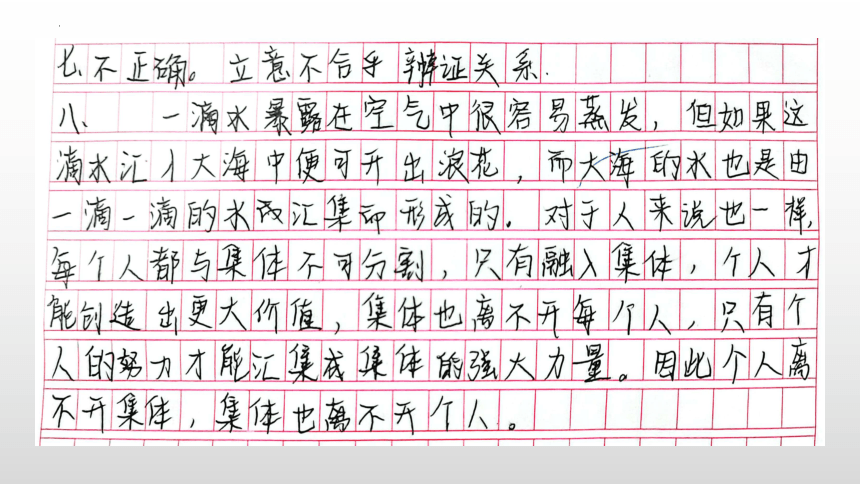 七、不正确。立意不合乎辩证关系.
八、 一滴水暴露在空气中很容易蒸发，但如果这
滴水汇入大海中便可开出浪花，而大海的水也是由
一滴一滴的水汇集而形成的. 对于人来说也一样,
每个人都与集体不可分割，只有融入集体，个人才
能创造出更大价值，集体也离不开每个人，只有个
人的努力才能汇集成集体的强大力量。因此个人离
不开集体，集体也离不开个人。